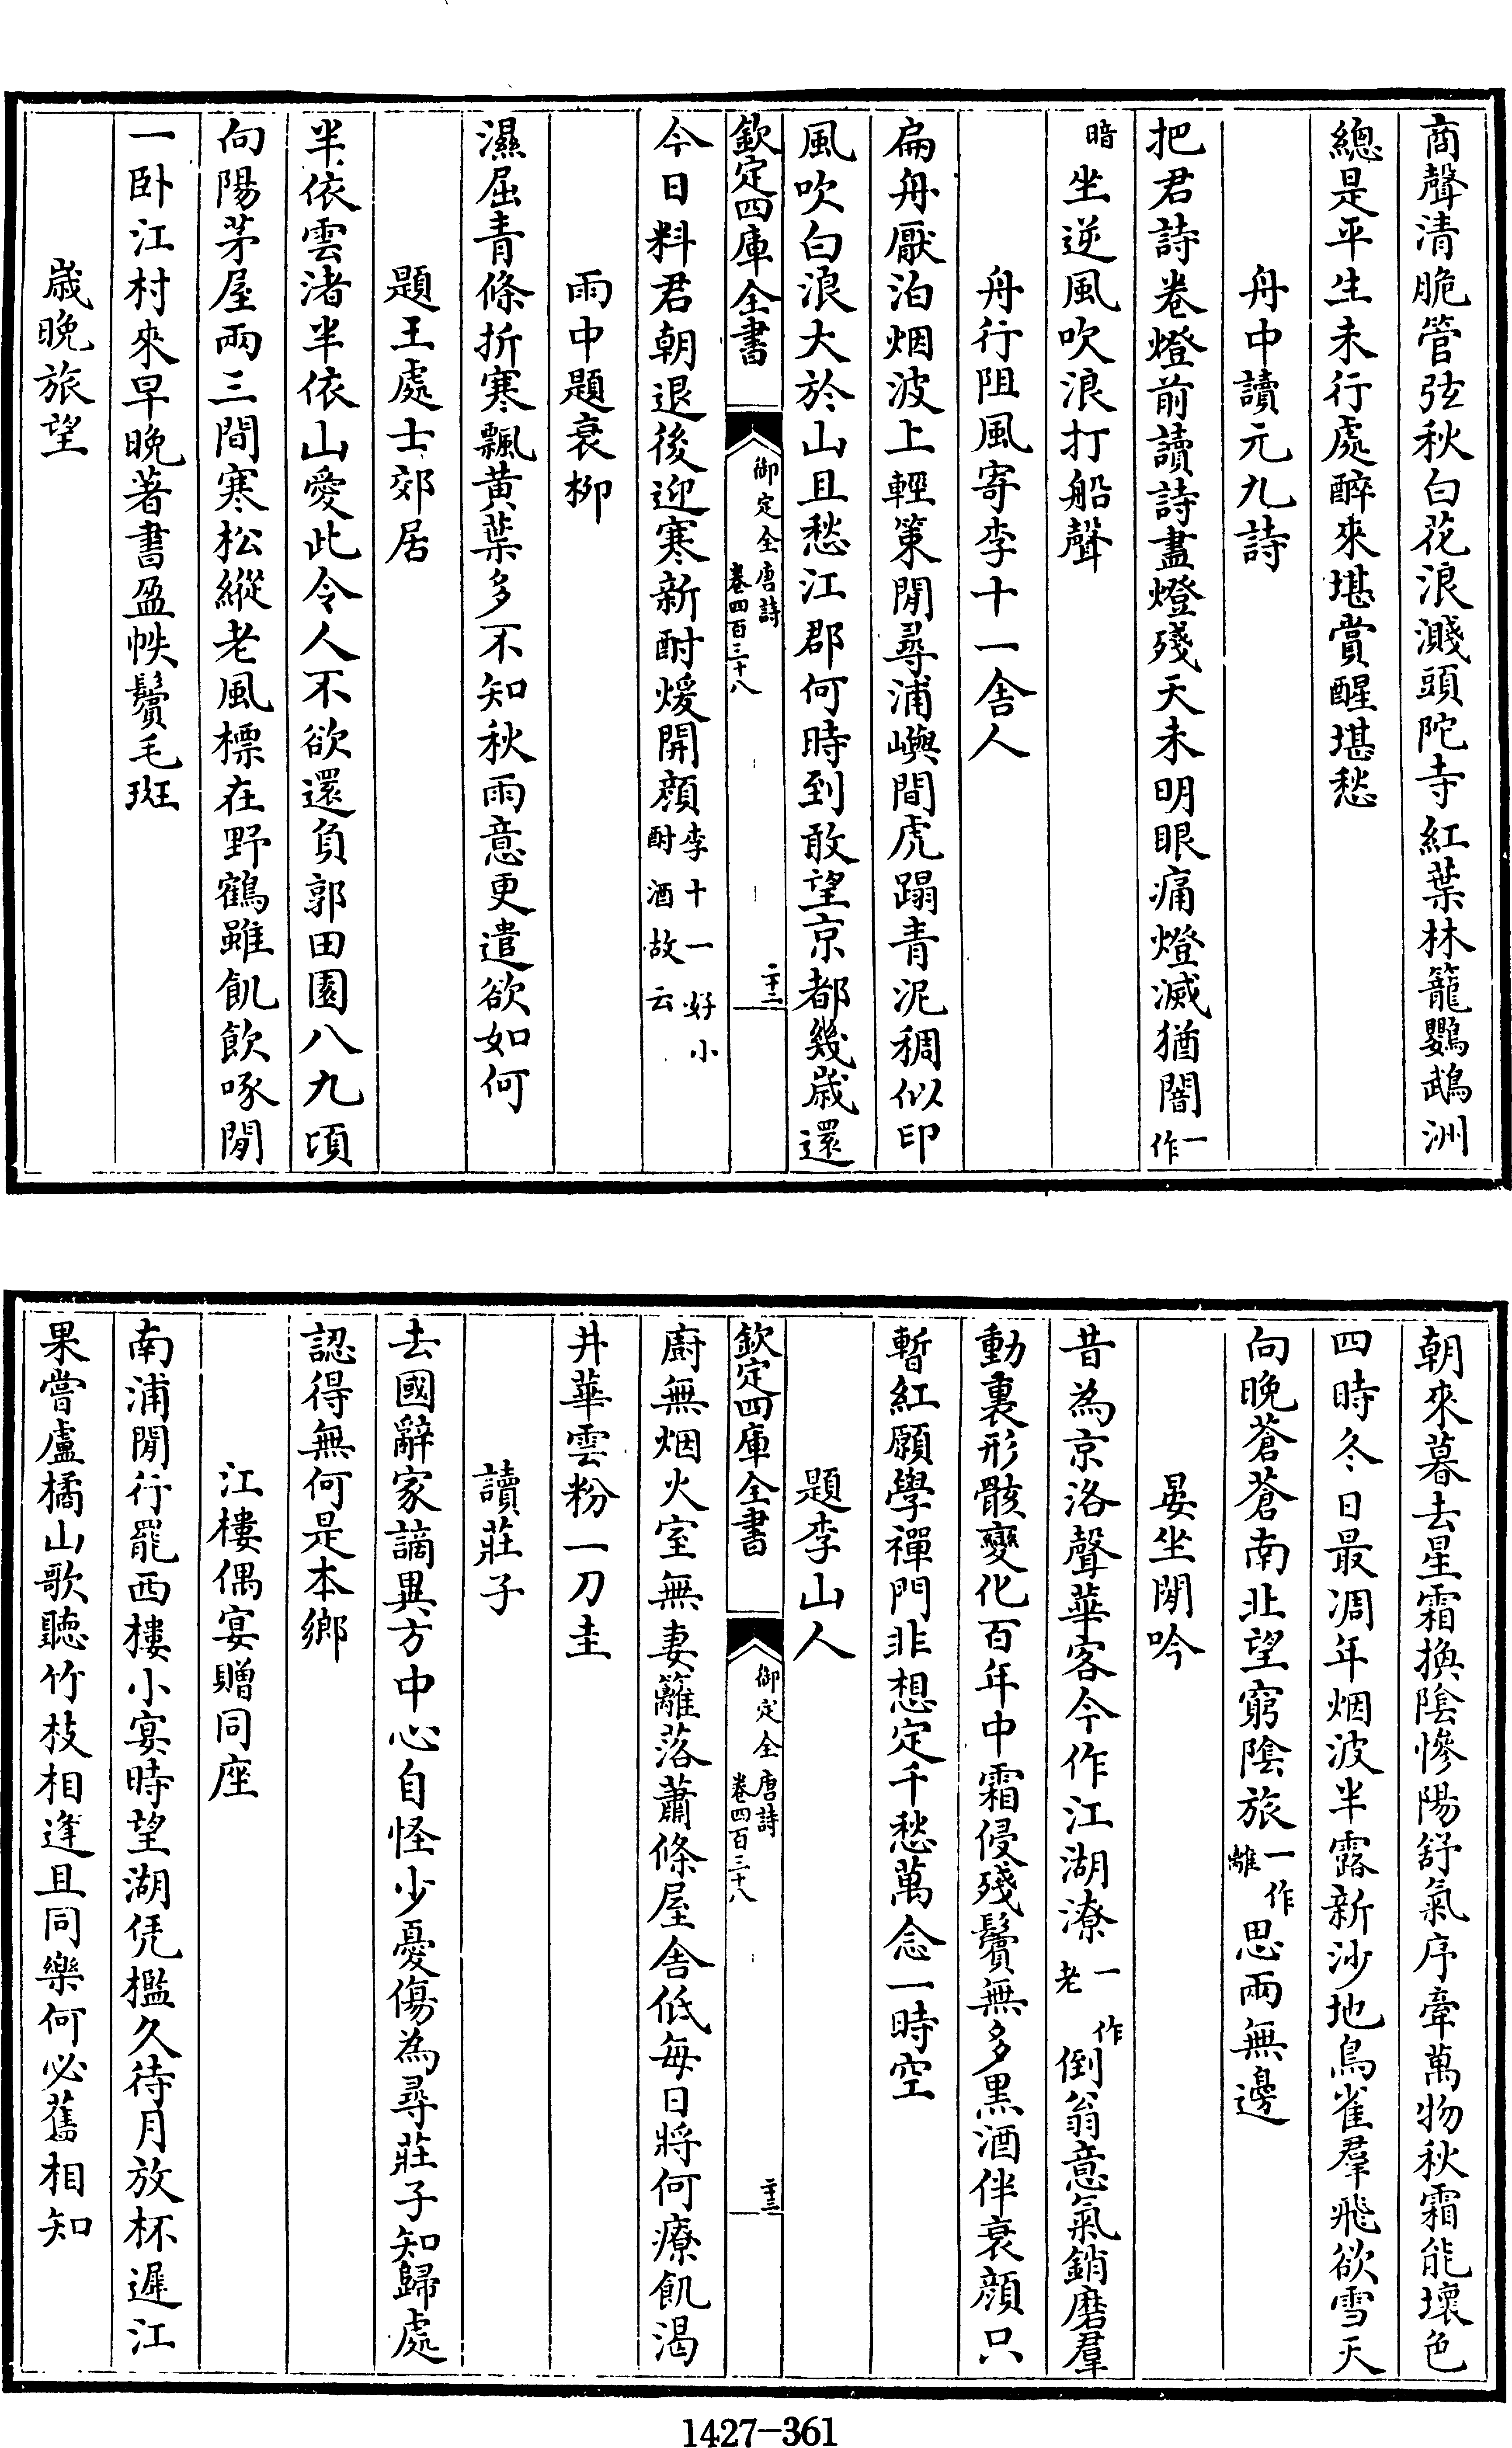 商聲清脆管弦秋白花浪濺頭陀寺紅葉林籠鸚鵡洲
總是平生未行處醉來堪賞醒堪愁
舟中讀元九詩
把君詩卷燈前讀詩盡燈殘天未明眼痛燈滅猶闇一作
暗坐逆風吹浪打船聲
舟行阻風寄李十一舍人
扁舟厭泊烟波上輕策閒尋浦嶼間虎蹋青泥稠似印
風吹白浪大於山且愁江郡何時到敢望京都幾歲還
欽定四庫全書
御定全唐詩
卷四百三十八
二十二
今日料君朝退後迎寒新酎煖開顔李十一好小酎酒故云
雨中題衰柳
濕屈青條折寒飄黄葉多不知秋雨意更遣欲如何
題王處士郊居
半依雲渚半依山愛此令人不欲還負郭田園八九頃
向陽茅屋兩三間寒松縱老風標在野鶴雖飢飲啄閒
一卧江村來早晚著書盈帙鬢毛斑
歲晚旅望
朝來暮去星霜換陰慘陽舒氣序牽萬物秋霜能壞色
四時冬日最凋年烟波半露新沙地鳥雀羣飛欲雪天
向晚蒼蒼南北望窮陰旅一作離思兩無邊
晏坐閒吟
昔為京洛聲華客今作江湖潦一作老倒翁意氣銷磨羣
動裏形骸變化百年中霜侵殘鬢無多黑酒伴衰顔只
暫紅願學禪門非想定千愁萬念一時空
題李山人
欽定四庫全書
御定全唐詩
卷四百三十八
二十三
廚無烟火室無妻籬落蕭條屋舍低每日將何療飢渴
井華雲粉一刀圭
讀莊子
去國辭家謫異方中心自怪少憂傷為尋莊子知歸處
認得無何是本鄉
江樓偶宴贈同座
南浦閒行罷西樓小宴時望湖凭檻久待月放杯遲江
果嘗盧橘山歌聽竹枝相逢且同樂何必舊相知
1427-361